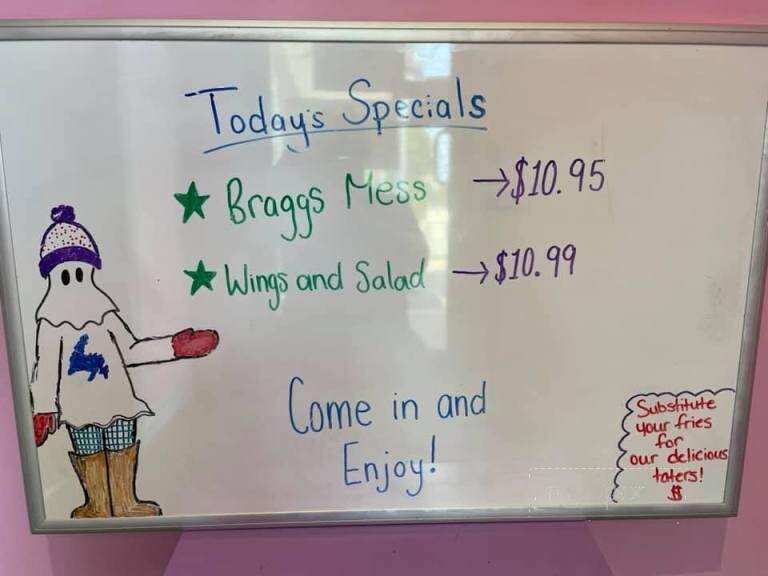 Today's Specials
★ Braggs Mess → $10.95
★ Wings and Salad → $10.99
Come in and
Enjoy!
Substitute
your fries
for
our delicious
taters!
$